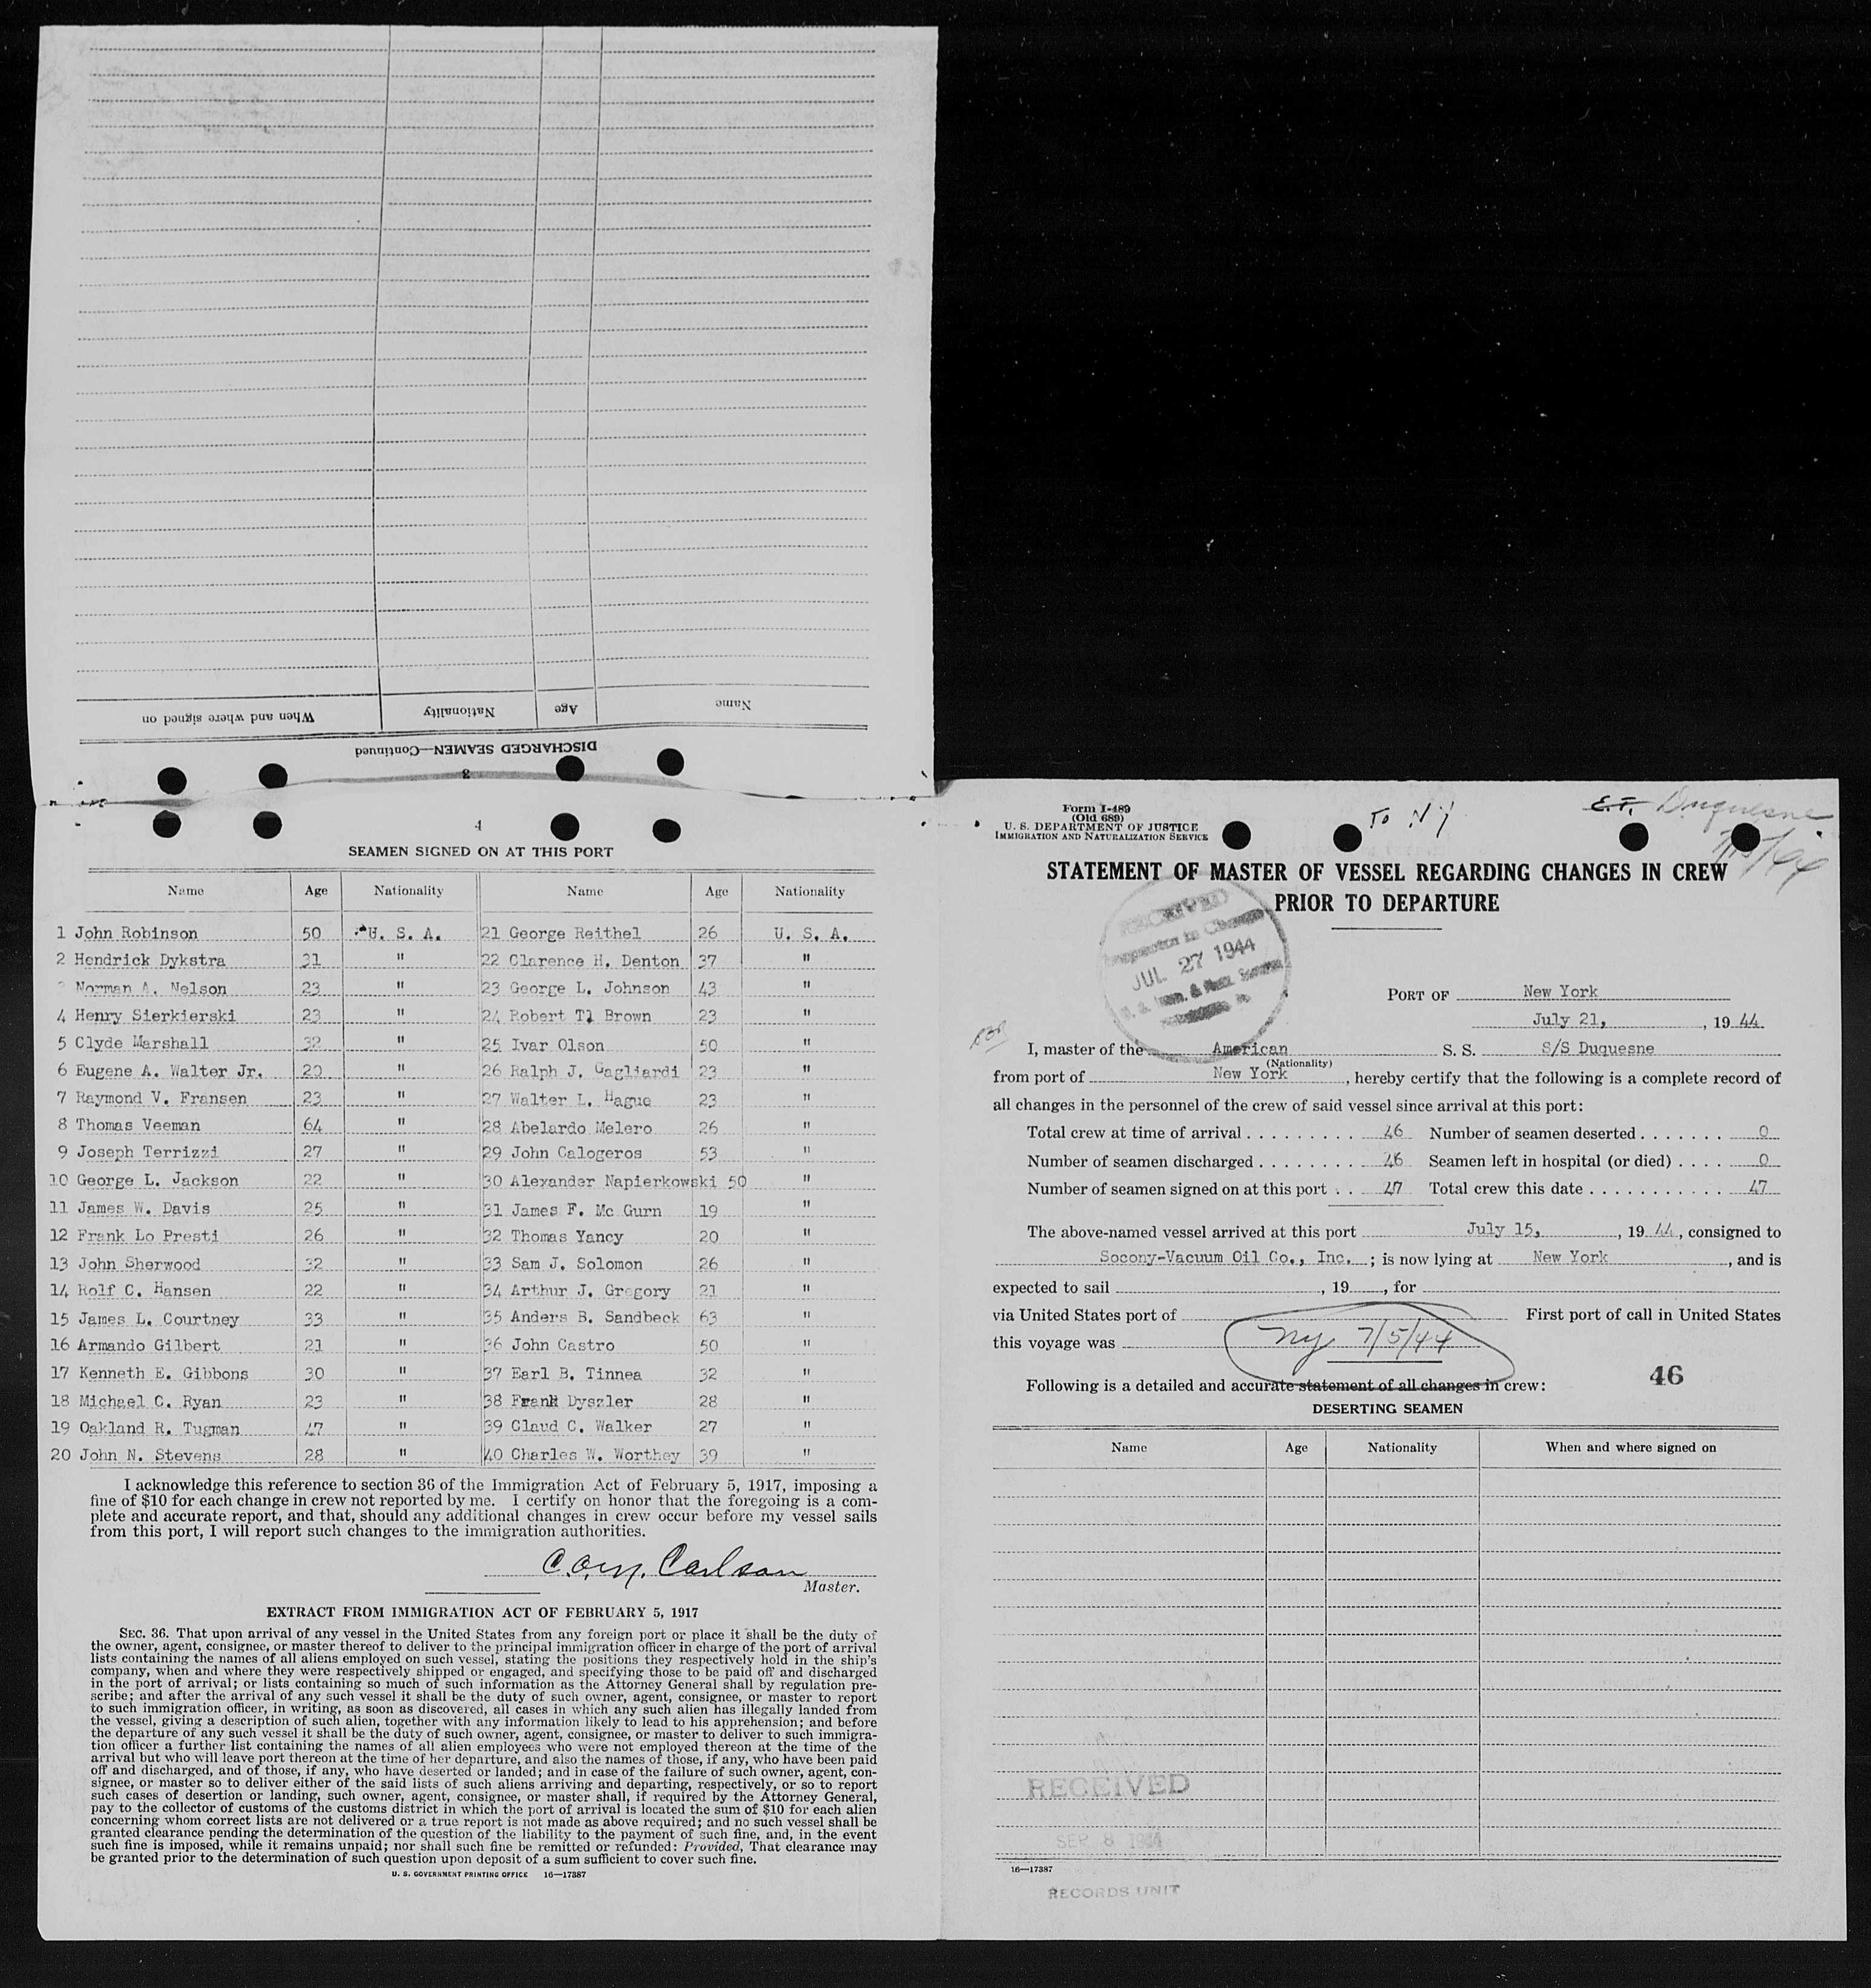 DISCHARGED SEAMEN—Continued
3
Name Age Nationality When and where signed on
4
SEAMEN SIGNED ON AT THIS PORT
Name Age Nationality Name Age Nationality
1 John Robinson 50 U. S. A. 21 George Reithel 26 U. S. A.
2 Hendrick Dykstra 31 " 22 Clarence H. Denton 37 "
Norman A. Nelson 23 " 23 George L. Johnson 43 "
4 Henry Sierkierski 23 " 24 Robert Tl Brown 23 "
5 Clyde Marshall 32 " 25 Ivar Olson 50 "
6 Eugene A. Walter Jr. 20 " 26 Ralph J. Gagliardi 23 "
7 Raymond V. Fransen 23 " 27 Walter L. Hague 23 "
8 Thomas Veeman 64 " 28 Abelardo Melero 26 "
9 Joseph Terrizzi 27 " 29 John Calogeros 53 "
10 George L. Jackson 22 " 30 Alexander Napierkowski 50 "
11 James W. Davis 25 " 31 James F. Mc Gurn 19 "
12 Frank Lo Presti 26 " 32 Thomas Yancy 20 "
13 John Sherwood 32 " 33 Sam J. Solomon 26 "
14 Rolf C. Hansen 22 " 34 Arthur J. Gregory 21 "
15 James L. Courtney 33 " 35 Anders B. Sandbeck 63 "
16 Armando Gilbert 21 " 36 John Castro 50 "
17 Kenneth E. Gibbons 30 " 37 Earl B. Tinnea 32 "
18 Michael C. Ryan 23 " 38 Frank Dyszler 28 "
19 Oakland R. Tugman 47 " 39 Claud C. Walker 27 "
20 John N. Stevens 28 " 40 Charles W. Worthey 39 "
I acknowledge this reference to section 36 of the Immigration Act of February 5, 1917, imposing a
fine of $10 for each change in crew not reported by me. I certify on honor that the foregoing is a com-
plete and accurate report, and that, should any additional changes in crew occur before my vessel sails
from this port, I will report such changes to the immigration authorities.
Carlson
Master.
EXTRACT FROM IMMIGRATION ACT OF FEBRUARY 5, 1917
SEC. 36. That upon arrival of any vessel in the United States from any foreign port or place it shall be the duty of
the owner, agent, consignee, or master thereof to deliver to the principal immigration officer in charge of the port of arrival
lists containing the names of all aliens employed on such vessel, stating the positions they respectively hold in the ship's
company, when and where they were respectively shipped or engaged, and specifying those to be paid off and discharged
in the port of arrival; or lists containing so much of such information as the Attorney General shall by regulation pre-
scribe; and after the arrival of any such vessel it shall be the duty of such owner, agent, consignee, or master to report
to such immigration officer, in writing, as soon as discovered, all cases in which any such alien has illegally landed from
the vessel, giving a description of such alien, together with any information likely to lead to his apprehension; and before
the departure of any such vessel it shall be the duty of such owner, agent, consignee, or master to deliver to such immigra-
tion officer a further list containing the names of all alien employees who were not employed thereon at the time of the
arrival but who will leave port thereon at the time of her departure, and also the names of those, if any, who have been paid
off and discharged, and of those, if any, who have deserted or landed; and in case of the failure of such owner, agent, con-
signee, or master so to deliver either of the said lists of such aliens arriving and departing, respectively, or so to report
such cases of desertion or landing, such owner, agent, consignee, or master shall, if required by the Attorney General,
pay to the collector of customs of the customs district in which the port of arrival is located the sum of $10 for each alien
concerning whom correct lists are not delivered or a true report is not made as above required; and no such vessel shall be
granted clearance pending the determination of the question of the liability to the payment of such fine, and, in the event
such fine is imposed, while it remains unpaid; nor shall such fine be remitted or refunded: Provided, That clearance may
be granted prior to the determination of such question upon deposit of a sum sufficient to cover such fine.
U. S. GOVERNMENT PRINTING OFFICE 16—17387
Form I-489
(Old 689)
U. S. DEPARTMENT OF JUSTICE
IMMIGRATION AND NATURALIZATION SERVICE
To NY
Duquesne
STATEMENT OF MASTER OF VESSEL REGARDING CHANGES IN CREW
PRIOR TO DEPARTURE
RECEIVED
Inspector in Charge
JUL 27 1944
PORT OF New York
July 21, , 19 44
I, master of the American S. S. S/S Duquesne
(Nationality)
from port of New York , hereby certify that the following is a complete record of
all changes in the personnel of the crew of said vessel since arrival at this port:
Total crew at time of arrival . . . . . . . . . 46 Number of seamen deserted . . . . . . . 0
Number of seamen discharged . . . . . . . . 46 Seamen left in hospital (or died) . . . . 0
Number of seamen signed on at this port . . 47 Total crew this date . . . . . . . . . . . 47
The above-named vessel arrived at this port July 15, , 19 44 , consigned to
Socony-Vacuum Oil Co., Inc. ; is now lying at New York , and is
expected to sail , 19 , for
via United States port of First port of call in United States
this voyage was Ny 7/5/44
Following is a detailed and accurate statement of all changes in crew:
46
DESERTING SEAMEN
Name Age Nationality When and where signed on
RECEIVED
SEP 8 1944
16—17387
RECORDS UNIT